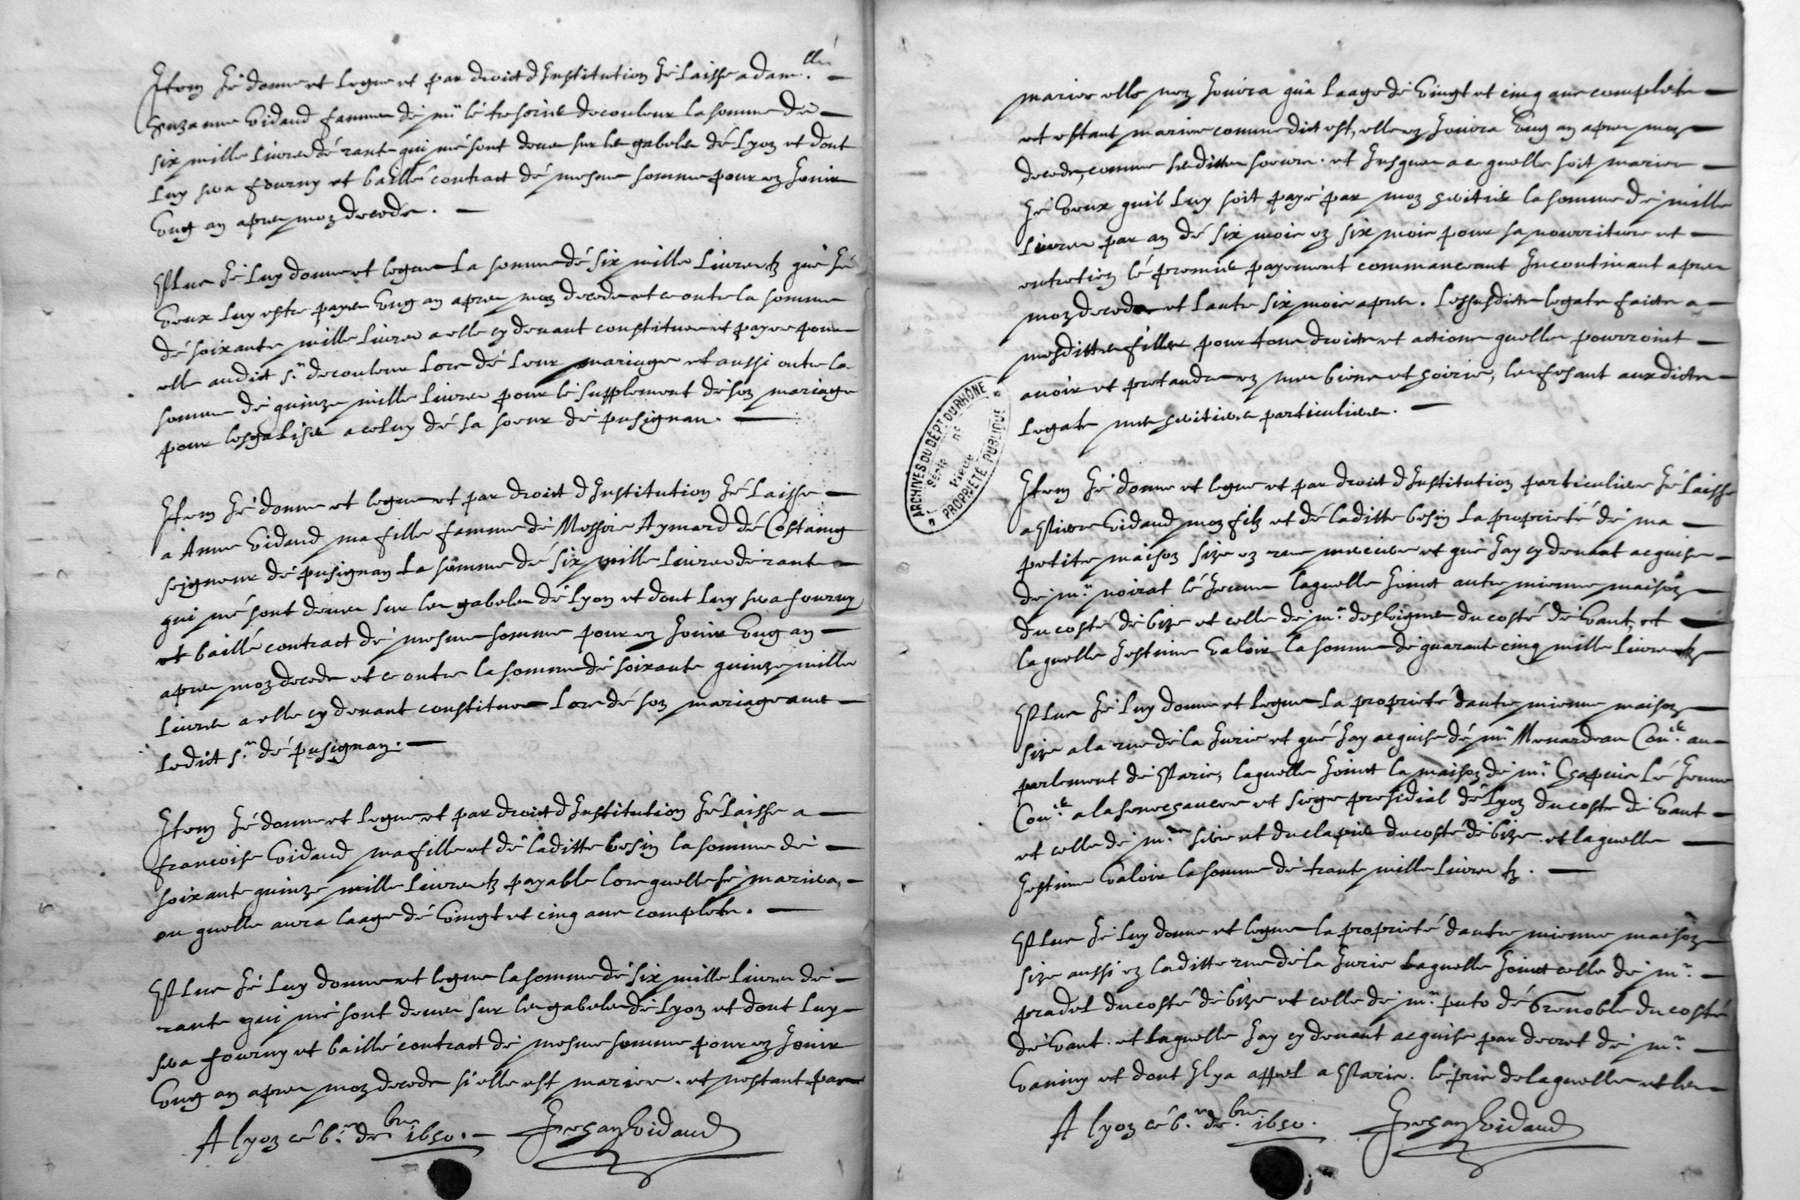 Item Jé donne et legue et par droict d'Institution Jé laisse a dam.lle
Suzanne Vidaud famme de mr lé tresorier decouleur la somme dé
six mille livres dé rante qui mé sont deues sur les gabeles dé Lyon et dont
luy sera fourny et baillé contract dé mesme somme pour en Jouir
Ung an apres mon decede.
Plus Jé luy donne et legue la somme dé six mille livres tz que Jé
veux luy estre payee Ung an apres mon decede et ce outre la somme
dé soixante mille livres a elle cy devant constituee et payee pour
elle audict sr decouleur Lors dé leur mariage et aussi outre la
somme dé quinze mille livres pour lé supplement dé son mariage
pour lesgaliser a celuy dé sa soeur dé pusignan.
Item Jé donne et legue et par droict d'Institution Jé laisse
a Anne Vidaud ma fille famme dé Messire Aymard dé Costaing
seigneur dé pusignan la somme dé six mille livres dé rante
qui mé sont deues sur les gabeles dé Lyon et dont luy sera fourny
et baillé contract dé mesme somme pour en Jouir Ung an
apres mon decede et ce outre la somme dé soixante quinze mille
livres a elle cy devant constituee Lors dé son mariage avec
ledict sr dé pusignan.
Item Jé donne et legue et par droict d'Institution Jé laisse a
francoise Vidaud ma fille et dé laditte besin la somme dé
soixante quinze mille livres tz payable lors quelle sé mariera,
ou quelle aura laage dé vingt et cinq ans complets.
Plus Jé luy donne et legue la somme dé six mille livres dé
rante qui mé sont deues sur les gabeles dé Lyon et dont luy
sera fourny et baillé contract dé mesme somme pour en Jouir
Ung an apres mon decede si elle est mariee. et nestant pas
A lyon cé 6.e de.bre 1650. Jehan Vidaud
mariee elle nen Jouira qua laage dé vingt et cinq ans complets
et estant mariee comme dict est, elle en Jouira Ung an apres mon
decede, comme sesditte soeurs. et Jusques a ce quelle soit mariee
Jé veux quil luy soit payé par mon heritier la somme dé mille
livres par an dé six mois en six mois pour sa nourriture et
entretien lé premier payement commanceant Incontinant apres
mon decede et lautre six mois apres. Lessusdicts legats faicts a
mesdittes filles pour tous droicts et actions quelles pourroint
avoir et pretandre en mes biens et hoirie, les fesant auxdicts
legats mes heritieres particulieres.
Item Jé donne et legue et par droict d'Institution particuliere Jé laisse
a Pierre Vidaud mon filz et dé laditte besin la proprieté dé ma
petite maison size en rue merciere et qué Jay cy devant acquise
de mr. noirat lé Jeune laquelle Joinct autre mienne maison
du costé dé bize et celle dé mr. desvignes du costé dé vant, et
laquelle Jestime valoir la somme dé quarante cinq mille livres tz
Plus Jé luy donne et legue la proprieté dautre mienne maison
size a la rue dé la Jurie et qué Jay acquise dé mr. Menardeau Con.er au
parlement dé Paris, laquelle Joinct la maison dé mr. Chapuis lé Jeune
Con.er a la seneschaucee et siege presidial dé Lyon du costé dé vant
et celle dé mrs. seve et duclapier du costé dé bize. et laquelle
Jestime valoir la somme dé trante mille livres tz.
Plus Jé luy donne et legue la proprieté dautre mienne maison
size aussi en laditte rue dé la Jurie laquelle Joinct celle dé mr.
pradel du costé dé bize et celle dé mr. puto dé Grenoble du costé
dé vant. et laquelle Jay cy devant acquise par decret dé mr.
vaniny et dont Il y a appel a Paris. lé pris de laquelle et les
A lyon cé 6.e de.bre 1650. Jehan Vidaud
ARCHIVES DU DÉPT DU RHÔNE
Série
n°
Pièce
PROPRIÉTÉ PUBLIQUE